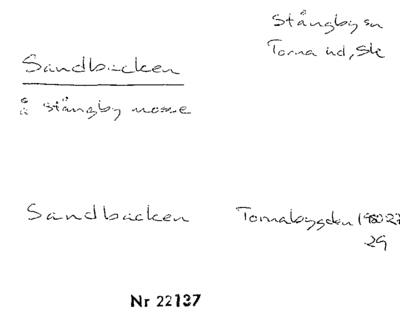 Stångby sn
Torna hd, Sk
Sandbäcken
å Stångby mosse
Sandbäcken Tornabygden 1960:27
29
Nr 22137